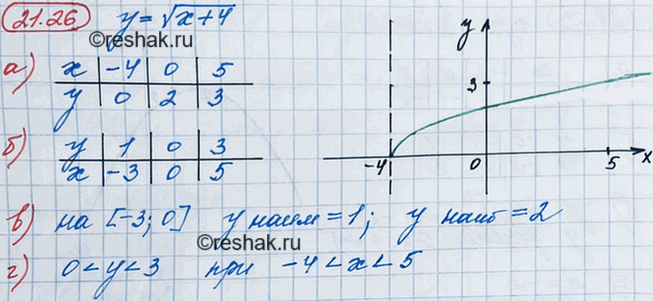 21.26 y = √x+4
©reshak.ru
а) x | -4 | 0 | 5
y | 0 | 2 | 3
б) y | 1 | 0 | 3
x | -3 | 0 | 5
y
3
-4 0 5 x
в) на [-3; 0] y наим = 1; y наиб = 2
©reshak.ru
г) 0 < y < 3 при -4 < x < 5